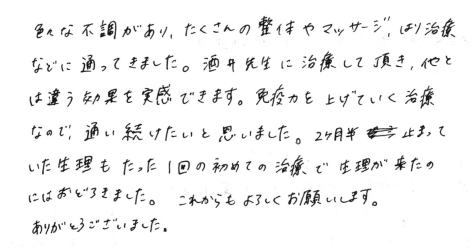 色々な不調があり、たくさんの整体やマッサージ、はり治療
などに通ってきました。酒井先生に治療して頂き、他と
は違う効果を実感できます。免疫力を上げていく治療
なので、通い続けたいと思いました。2ヶ月半 止まって
いた生理もたった1回の初めての治療で生理が来たの
にはおどろきました。 これからもよろしくお願いします。
ありがとうございました。